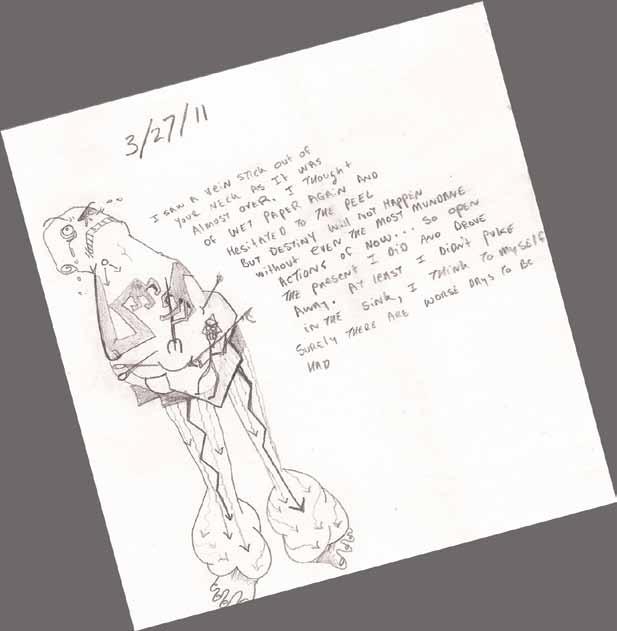 3/27/11
I SAW A VEIN STICK OUT OF
YOUR NECK AS IT WAS
ALMOST OVER. I THOUGHT
OF WET PAPER AGAIN AND
HESITATED TO THE PEEL
BUT DESTINY WILL NOT HAPPEN
WITHOUT EVEN THE MOST MUNDANE
ACTIONS OF NOW... SO OPEN
THE PRESENT I DID AND DROVE
AWAY. AT LEAST I DIDN'T PUKE
IN THE SINK, I THINK TO MYSELF
SURELY THERE ARE WORSE DAYS TO BE
HAD